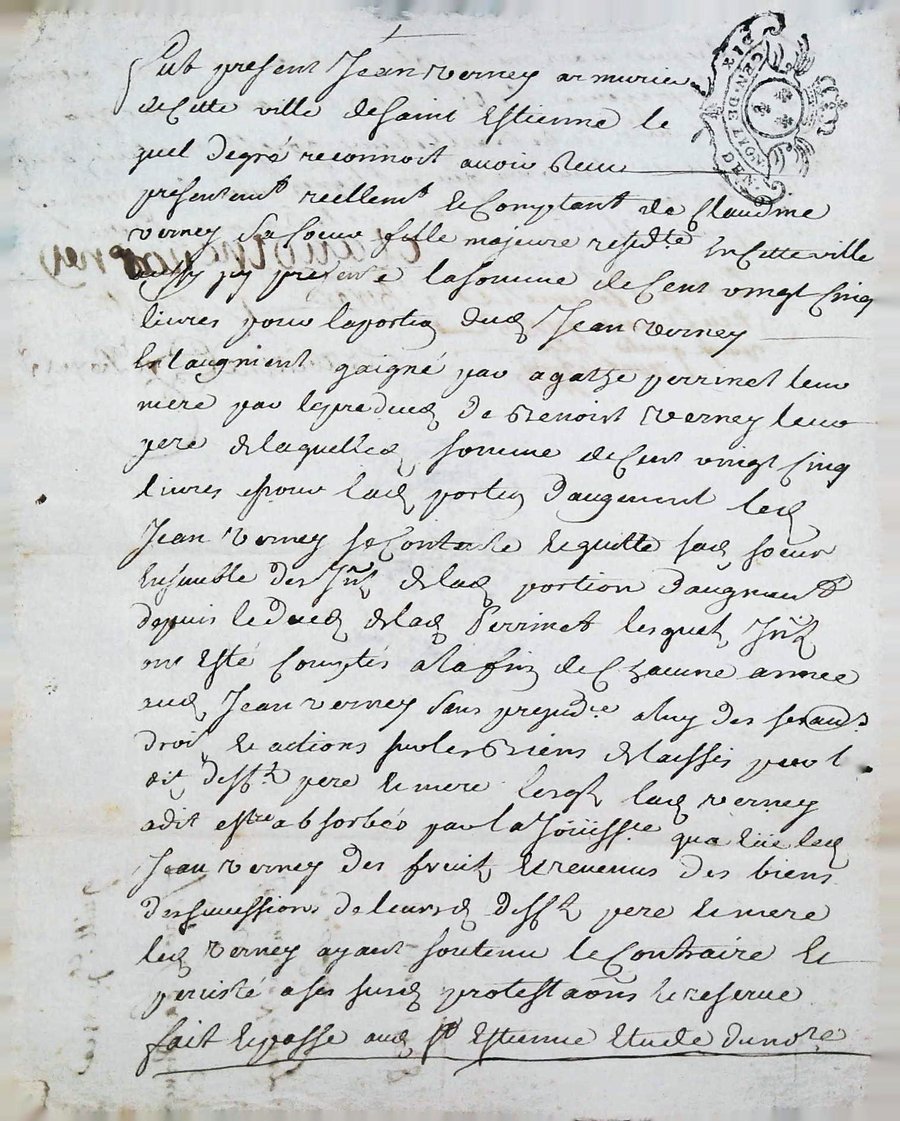 GEN. DE LION
DIX DEN.
Fut present Jean Verney armurier
de Cette ville de Saint Estienne le
quel de gré reconnoit avoir Receu
presentemt reellemt et Comptant de Claudine
Verney Sa Soeur fille majeure residte En Cette ville
aussy icy presente la Somme de Cent vingt Cinq
livres pour la portion dud Jean Verney
En l'augment gaigné par agathe perrinet leur
mere par le predeces de Benoist Verney leur
pere de laquelle somme de Cent vingt Cinq
livres pour lad portion d'augment led
Jean Verney se Contente et quitte sad soeur
Ensemble des Jnts de lad portion d'augment
depuis le deces de lad Perrinet lesquels Jnts
ont Esté Comptés a la fin de Chacune année
aud Jean Verney Sans prejudce a luy des ses autres
droits et actions sur les Biens delaissés par les
dits deffts pere et mere lesqls lad Verney
a dit estre absorbés par la Jouissce qu'a Eüe led
Jean Verney des fruits et revenus des biens
des successions de leursd deffts pere et mere
led Verney ayant soutenu le Contraire et
percisté a ses susd protestaons et reserve
fait et passé aud St Estienne Etude du nore